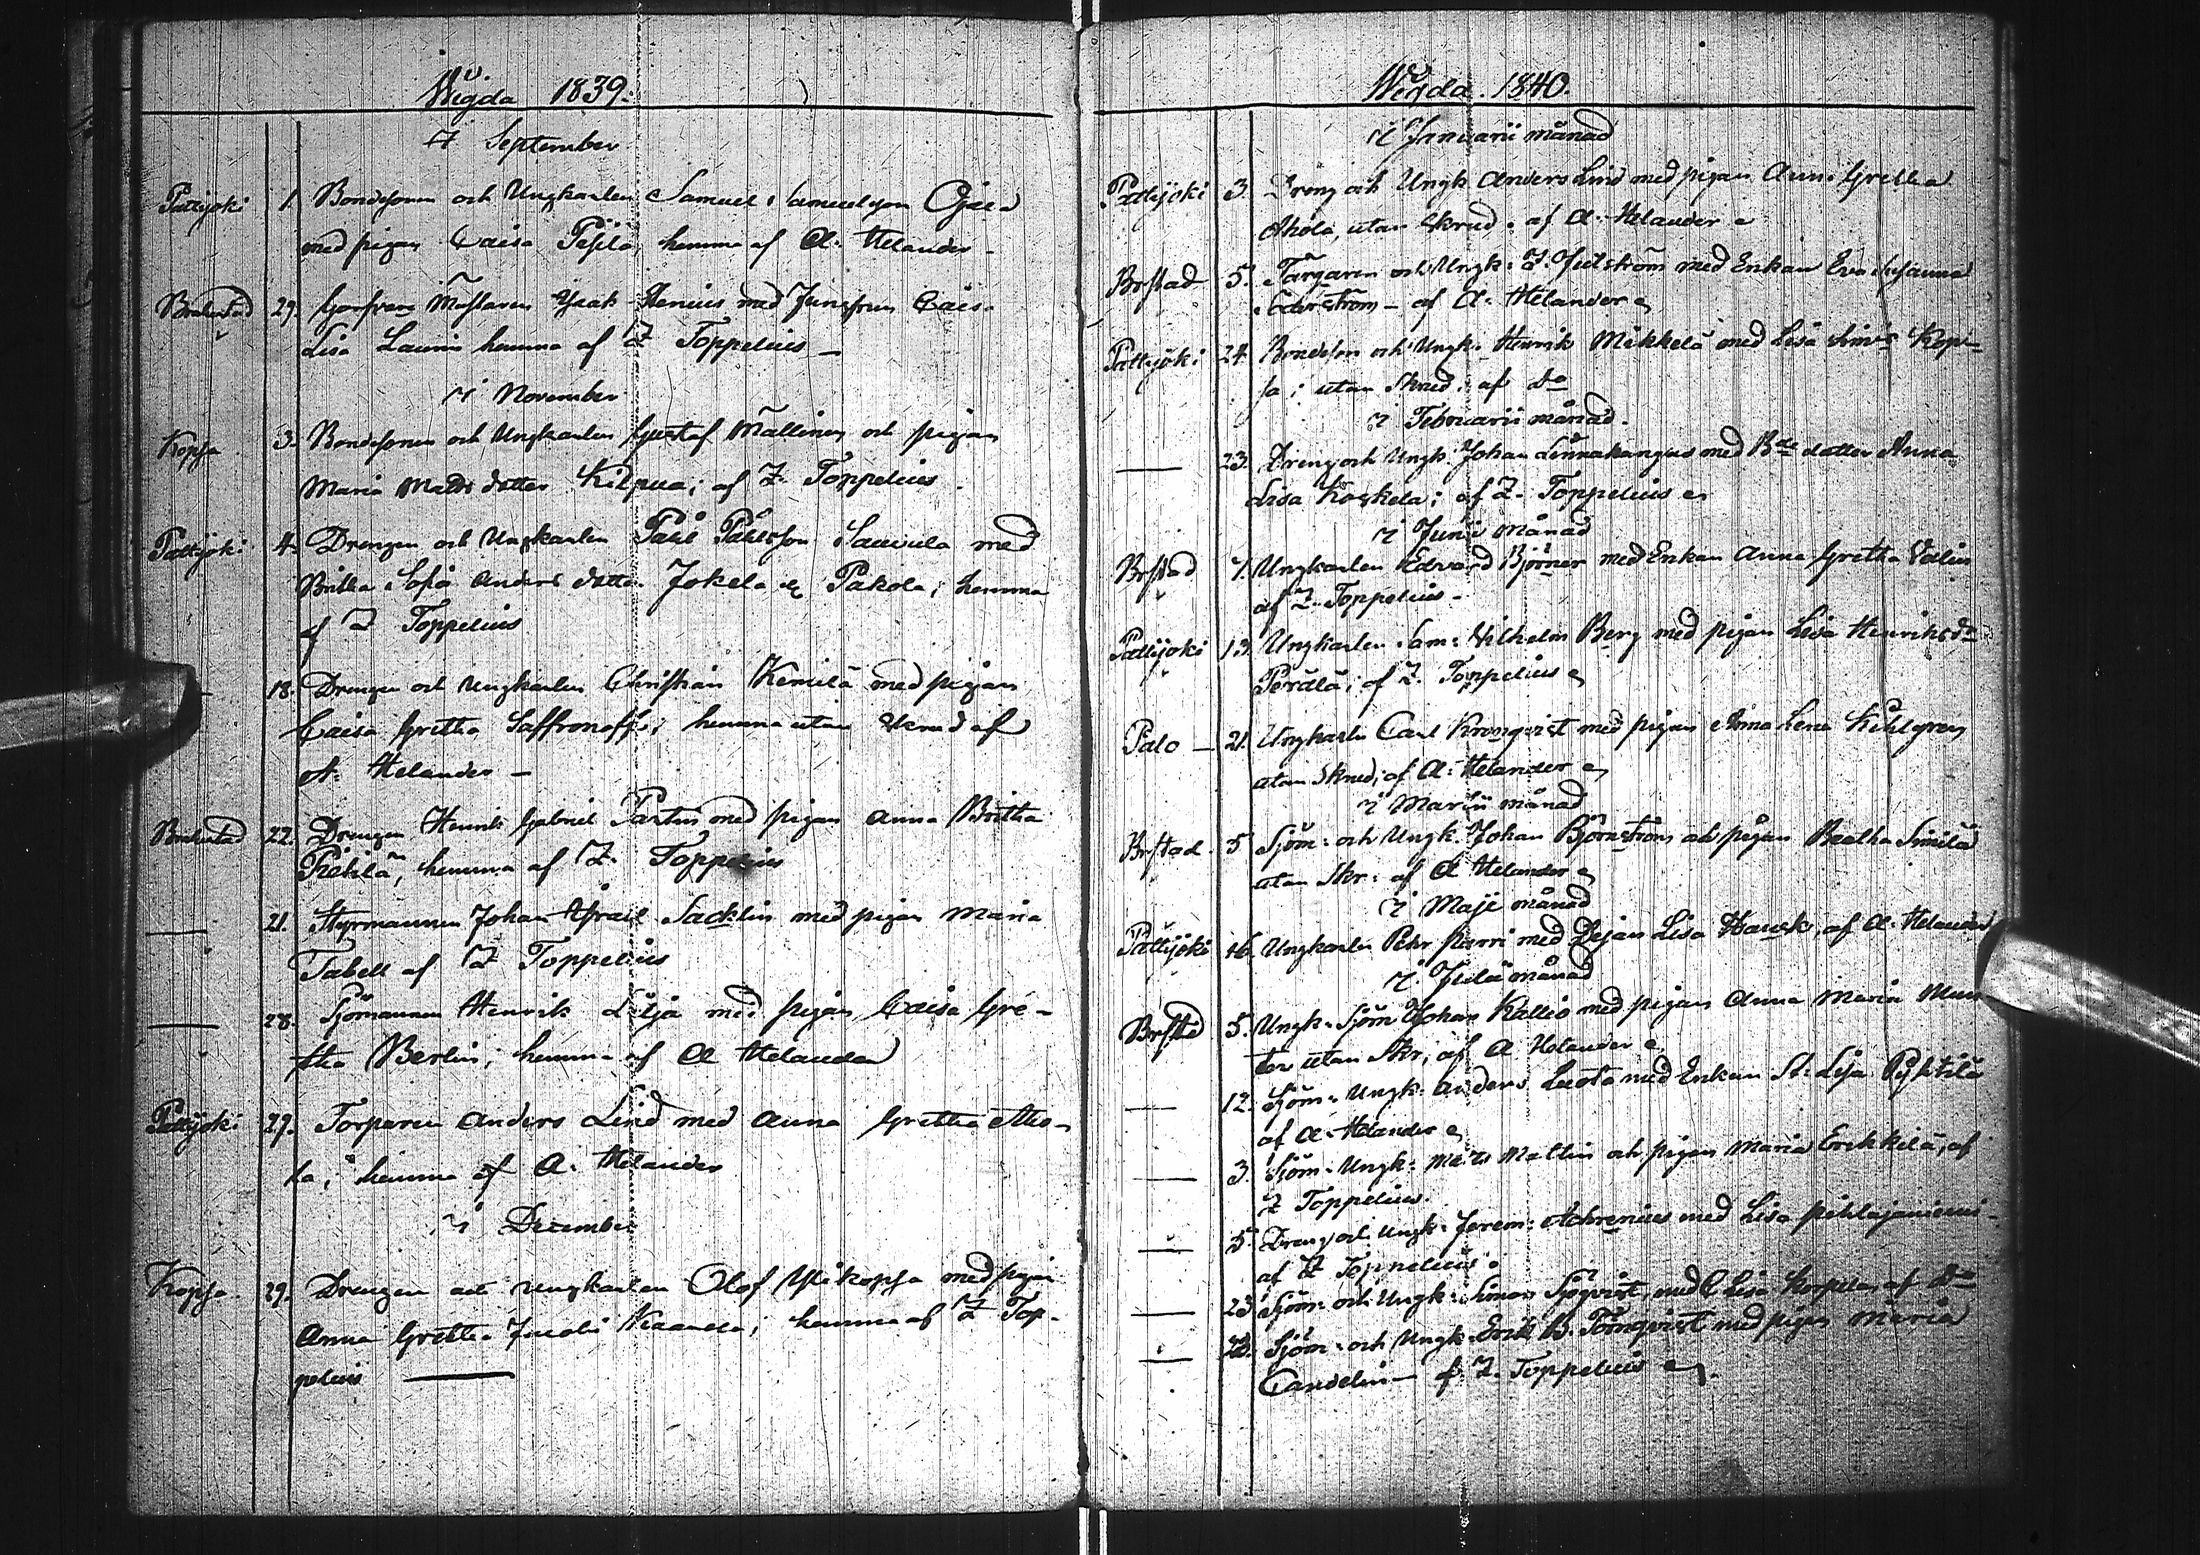 Wigda 1839.
i September
Pattijoki 1. Bondesonen och Ungkarlen Samuel Samuelson Ojala
med pigan Caisa hemma af A. Helander
Brahestad 29. Isak Stenius med Jungfrun Caisa
Lisa Laurin hemma af Z Toppelius
i November
Kopsa 3. Bondesonen och Ungkarlen Gustaf Mallinen och pigan
Maria Matts dotter Kilpua; af Z. Toppelius
Pattijoki 4. Drengen och Ungkarlen Påhl Påhlsson Sauvula med
Britha Sofia Anders dotter Jokela & Pakola; hemma
af Z Toppelius
18. Drengen och Ungkarlen Christian Kemilä med pigan
Caisa Gretha Saffronoff; hemma utan skrud af
A. Helander
Brahestad 22. Drengen Henrik Gabriel med pigan Anna Britha
Piehlä, hemma af Z. Toppelius
21. Styrmannen Johan Israel Sacklin med pigan Maria
Tabell af Z Toppelius
28. Sjömannen Henrik Lilja med pigan Caisa Gre-
tha Berlin; hemma af A Helander
Pattijoki 29. Torparen Anders Lind med Anna Gretha Aho-
la, hemma af A. Helander
i December
Kopsa 29. Drengen och Ungkarlen Olof Ylikopsa med pigan
Anna Gretha Jacobs hemma af Z Top-
pelius
Wigda 1840.
i Januarii månad
Pattijoki 3. Dreng och Ungk. Anders Lind med pigan Anna Gretha
Ahola, utan skrud; af A. Helander
Brstad 5. Färgaren och Ungk: J. Julström med Enkan Eva Susanna
Söderström - af A. Helander
Pattijoki 24. Bondeson och Ungk. Henrik Mikkelä med Lisa Kop-
sa; utan skrud; af Do
i Februarii månad.
23. Dreng och Ungk. Johan Linnakangas med Bde dotter Anna
Lisa Koskela; af Z. Toppelius
i Junii månad
Brstad 7. Ungkarlen Edvard Björner med Enkan Anna Gretha
af Z. Toppelius
Pattijoki 13. Ungkarlen Sam: Wilhelm Berg med pigan Lisa Henriksdr
Perälä; af Z. Toppelius
Palo 21. Ungkarln Carl Kronqvist med pigan Anna Lena Kihlgren
utan skrud; af A. Helander
i Martii månad
Brstad 5 Sjöm: och Ungk. Johan Björnström och pigan Beatha Similä
utan skr: af A Helander
i Maji månad
Pattijoki 16. Ungkarlen Pehr Parri med Pigan Lisa Hauok, af A. Helander
i Julii månad
Brstd 5. Ungk. Sjöm Johan Kallio med pigan Anna Maria Mun
ter utan skr; af A Helander
12. Sjöm. Ungk. Anders Luoto med Enkan St: Lisa Pyhtilä
af A. Helander
3. Sjöm. Ungk: Matts Mattin och pigan Maria Erikkilä, af
Z Toppelius.
5. Dreng och Ungk. Jerem: Achrenius med Lisa Pihlajaniemi
af Z Toppelius
23 Sjöm: och Ungk. Simon Sjöqvist, med C Lisa Korpela, af Do
23. Sjöm: och Ungk. Erik W. Törnqvist med pigan Maria
Candelin af Z. Toppelius